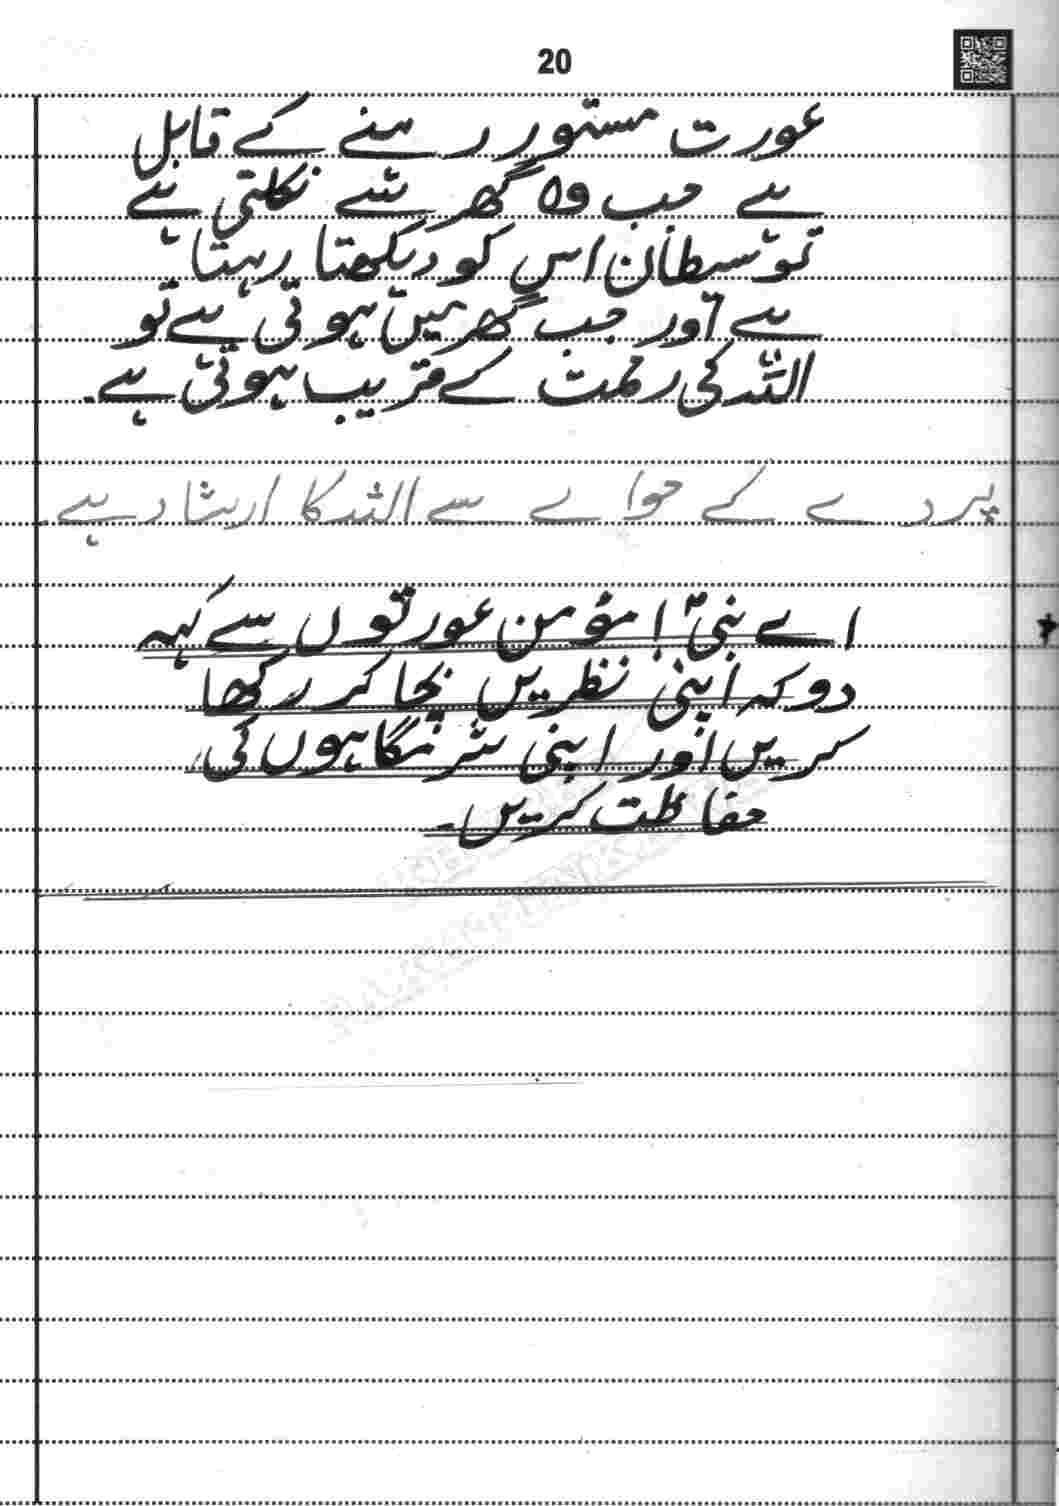 20
عورت مستور رہنے کے قابل
ہے جب وہ گھر سے نکلتی ہے
تو شیطان اس کو دیکھتا رہتا
ہے اور جب گھر میں ہوتی ہے تو
اللہ کی رحمت کے قریب ہوتی ہے۔
پردے کے حوالے سے اللہ کا ارشاد ہے
اے نبیؐ! مؤمن عورتوں سے کہہ
دو کہ اپنی نظریں بچا کر رکھا
کریں اور اپنی شرمگاہوں کی
حفاظت کریں۔